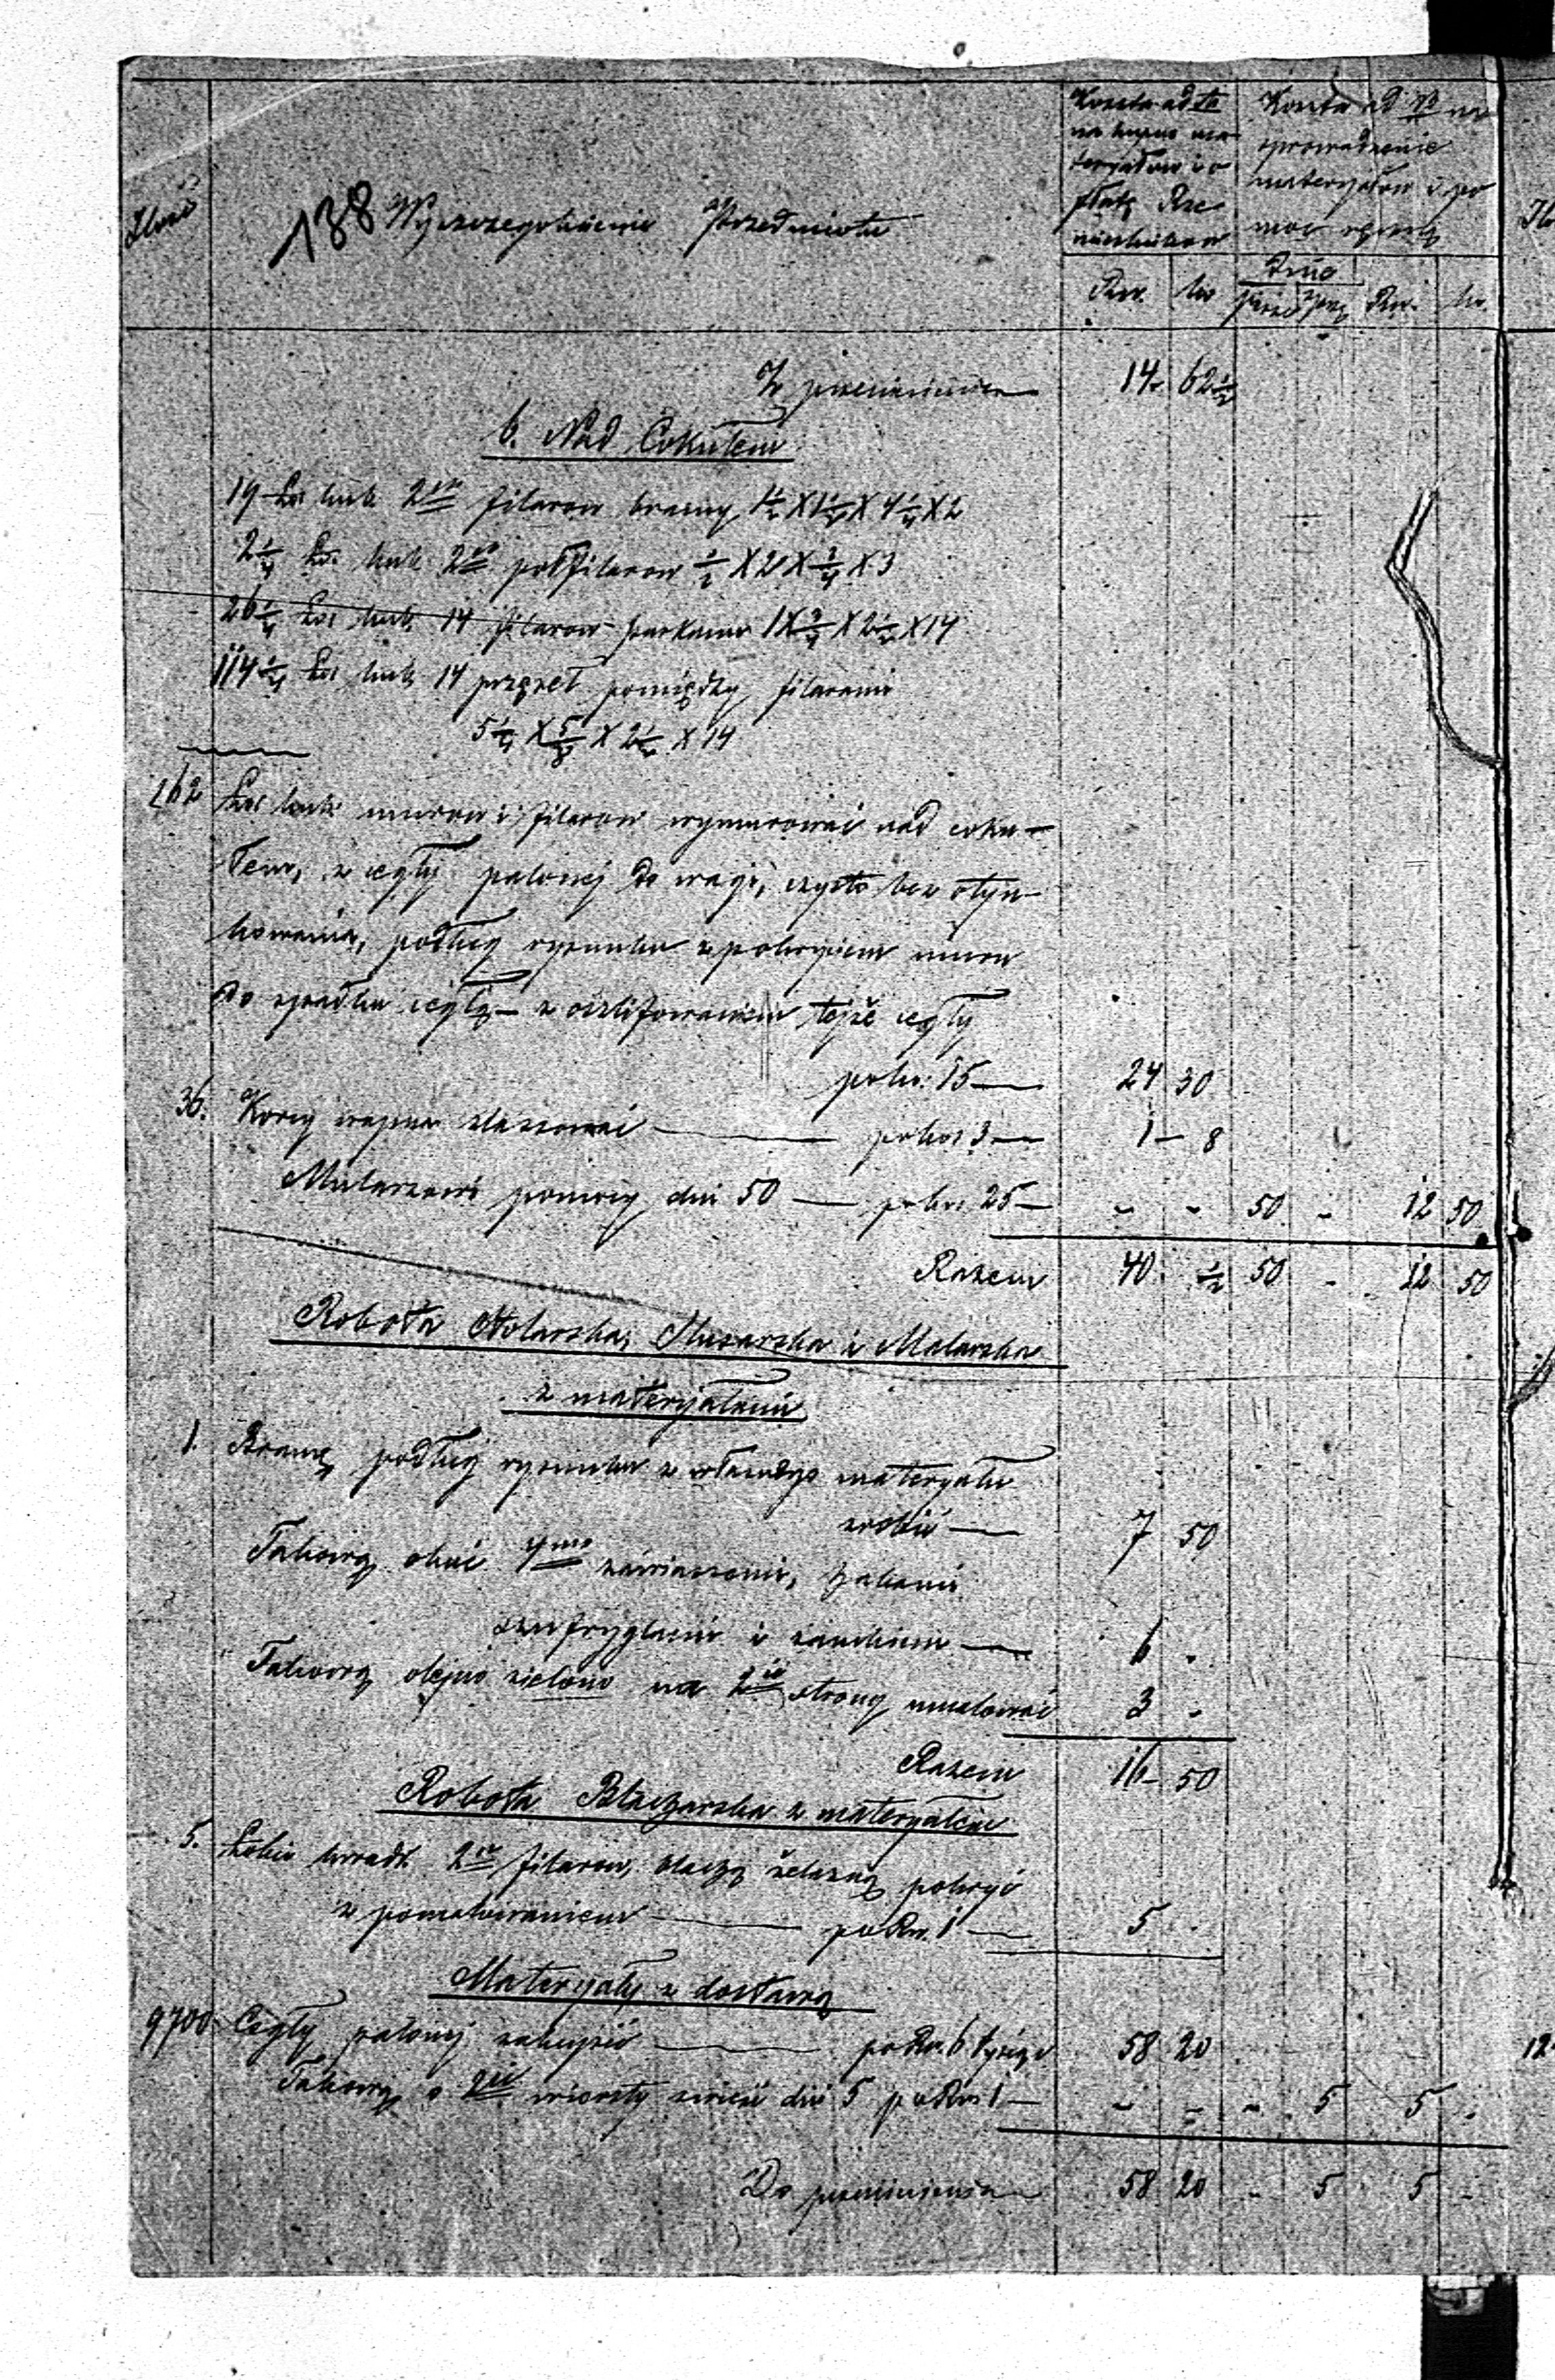 138
Ilość
Wyszczególnienie Przedmiotu
Koszta
na kupno ma-
teryałów i o
płatę Rze-
mieślników
Koszta na
sprowadzenie
materyałów i po
moc ręczną
Rsr. ko
Dnie
piesze Rsr. ko.
Z przeniesienia 14 62 1/2
b. Nad Cokułem
19 Łoi kub. 2ch filarow bramy 1 1/2 X 1 1/2 X 4 1/4 X 2
2 1/4 Łoi kub. 2ch półfilarow 1/2 X 2 X 3/4 X 3
26 1/4 Łoi kub. 14 filarow parkanu 1 X 3/4 X 2 1/2 X 14
114 1/4 Łoi kub. 14 przęseł pomiędzy filarami
5 1/4 X 5/8 X 2 1/2 X 14
162 Łoi kub. murow i filarow wymurować nad coku-
łem, z cegły palonej do wagi, czysto bez otyn-
kowania, podług rysunku z pokryciem muru
do spadku cegłą z oszlifowaniem tejże cegły
po ko. 15 24 30
36. Korcy wapna zlasować po ko. 3 1 8
Mularzowi pomocy dni 50 po ko. 25 - - 50 - 12 50
Razem 40 1/2 50 - 12 50
Robota Stolarska, Slusarska i Malarska
z materyałami
1. Bramę podług rysunku z własnego materyału
zrobić 7 50
Takową okuć 4ma zawiasami, hakami
i zamkiem 6 -
Takową olejno zielono na 2ie strony umalować 3 -
Razem 16 50
Robota Blacharska z materyałem
5. Łokci kwadr. 2ch filarow, blachą żelazną pokryć
z pomalowaniem po Rsr. 1 5 -
Materyały z dostawą
9700 Cegły palonej zakupić po Rsr. 6 tysiąc 58 20
Takową o 2ie wiorsty zwieść dni 5 po Rsr 1 - - - 5 5 -
Do przeniesienia 58 20 - 5 5 -